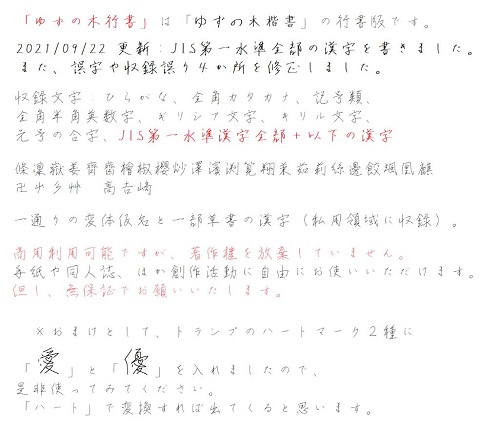 「ゆずの木行書」は「ゆずの木楷書」の行書版です。
2021/09/22 更新：JIS第一水準全部の漢字を書きました。
また、誤字や収録誤り4か所を修正しました。
収録文字：ひらがな、全角カタカナ、記号類、
全角半角英数字、ギリシア文字、キリル文字、
元号の合字、JIS第一水準漢字全部＋以下の漢字
條凜嶽姜齊齋檜椒櫻紗澤濱渕寬翔茉茄莉絲邊餃颯凰麒
卍卍彡艸　髙𠮷﨑
一通りの変体仮名と一部草書の漢字（私用領域に収録）。
商用利用可能ですが、著作権を放棄していません。
手紙や同人誌、ほか創作活動に自由にお使いいただけます。
但し、無保証でお願いいたします。
※おまけとして、トランプのハートマーク2種に
「愛」と「優」を入れましたので、
是非使ってみてください。
「ハート」で変換すれば出てくると思います。